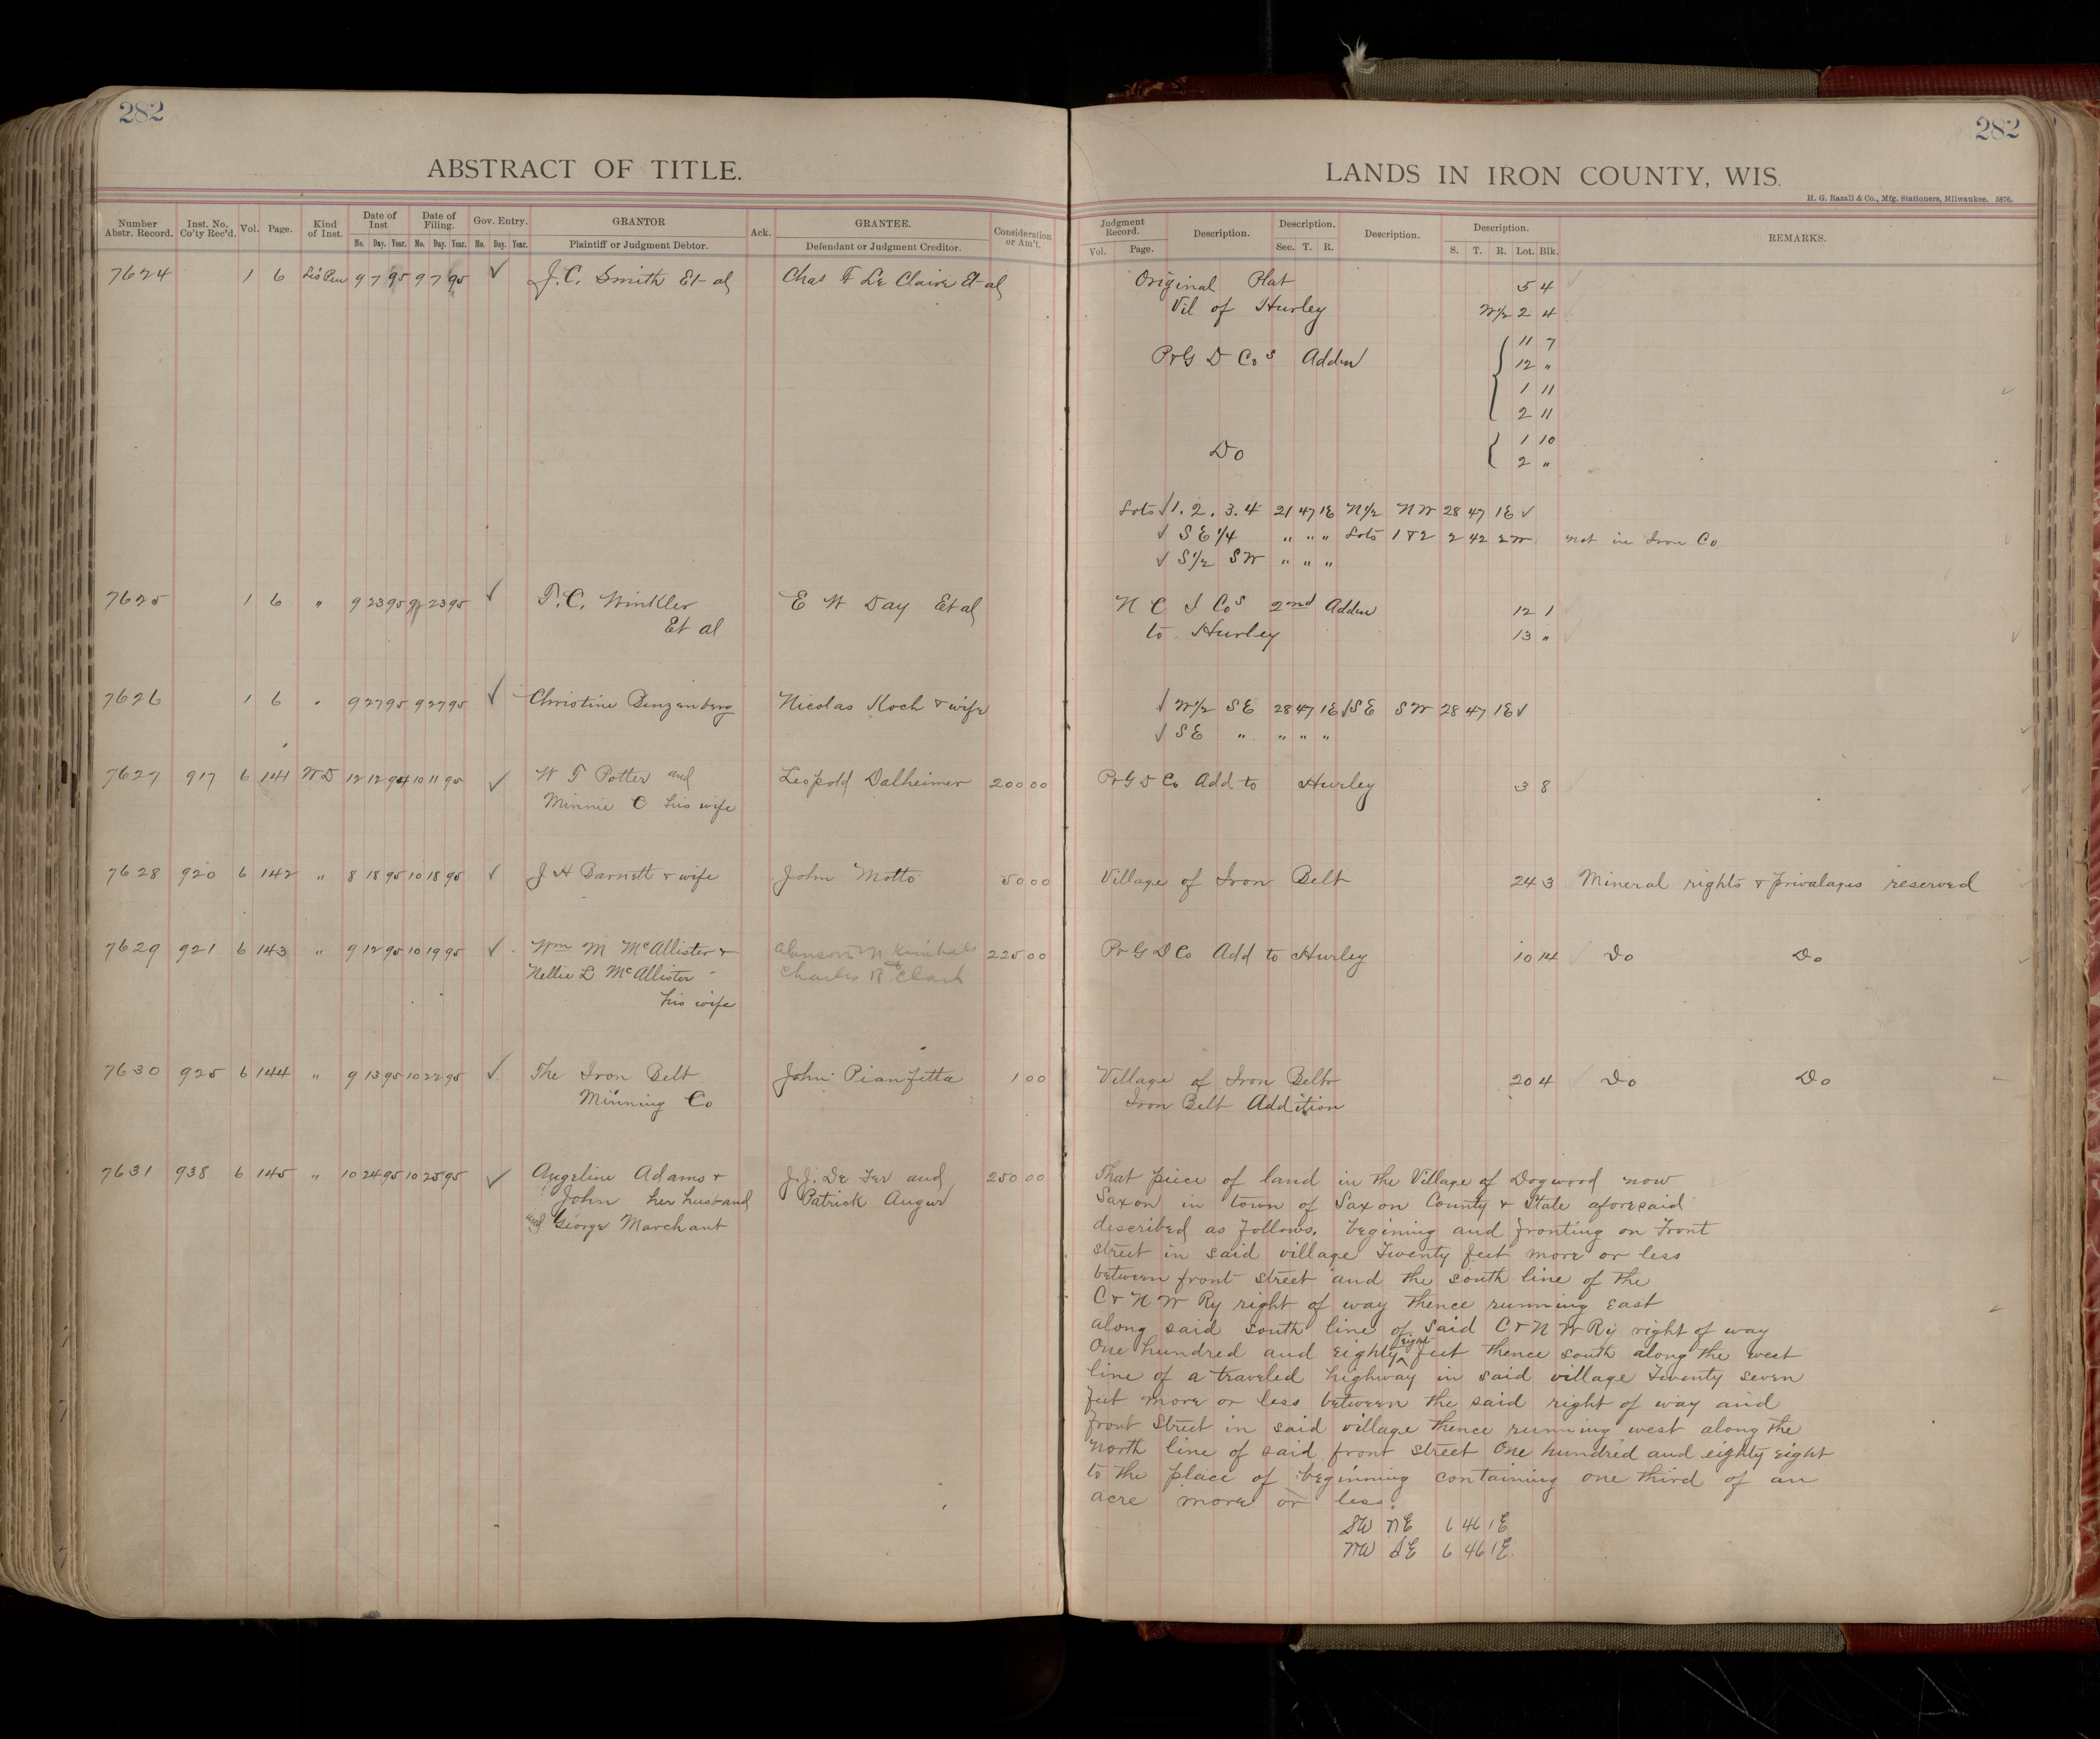 282
ABSTRACT OF TITLE.
Number Abstr. Record. Inst. No. Co'ty Rec'd. Vol. Page. Kind of Inst. Date of Inst Mo. Day. Year. Date of Filing. Mo. Day. Year. Gov. Entry. Mo. Day. Year. GRANTOR Plaintiff or Judgment Debtor. Ack. GRANTEE. Defendant or Judgment Creditor. Consideration or Am't.
7624 1 6 Lis Pen 9 7 95 9 7 95 ✓ J. C. Smith Et al Chas F Le Claire Et al
7625 1 6 " 9 23 95 9 23 95 ✓ T. C. Winkler E W Day Et al
Et al
7626 1 6 " 9 27 95 9 27 95 ✓ Christine Benzenberg Nicolas Koch & wife
7627 917 6 141 WD 12 12 94 10 11 95 ✓ W T Potter and Leopold Dalheimer 200 00
Minnie C his wife
7628 920 6 142 " 8 18 95 10 18 95 ✓ J H Barnett & wife John Motto 50 00
7629 921 6 143 " 9 12 95 10 19 95 ✓ Wm M McAllister & Alanson N Kimball 225 00
Nellie L McAllister & Charles R Clark
his wife
7630 925 6 144 " 9 13 95 10 22 95 ✓ The Iron Belt John Pianzetta 1 00
Minning Co
7631 938 6 145 " 10 24 95 10 25 95 ✓ Angeline Adams & J. J. De Fer and 250 00
John her husband Patrick Augur
and George Marchant
282
LANDS IN IRON COUNTY, WIS.
H. G. Razall & Co., Mfg. Stationers, Milwaukee. 5876.
Judgment Record. Vol. Page. Description. Description. Sec. T. R. Description. Description. S. T. R. Lot. Blk. REMARKS.
Original Plat 5 4
Vil of Hurley W½ 2 4
P&G D Cos Adden 11 7
12 "
1 11
2 11
Do 1 10
2 "
Lots ✓ 1. 2. 3. 4 21 47 1E N½ NW 28 47 1E ✓
✓ SE 1/4 " " " Lots 1 & 2 2 42 2W not in Iron Co
✓ S½ SW " " "
N C I Cos 2nd Adden 12 1
to Hurley 13 "
✓ W½ SE 28 47 1E ✓ SE SW 28 47 1E ✓
✓ SE " " " "
P&G D Co Add to Hurley 3 8
Village of Iron Belt 24 3 Mineral rights & privalages reserved
P&G D Co Add to Hurley 10 14 Do Do
Village of Iron Belt 20 4 Do Do
Iron Belt Addition
That piece of land in the Village of Dogwood now
Saxon in town of Saxon County & State aforesaid
described as follows. begining and fronting on Front
street in said village Twenty feet more or less
between front street and the south line of the
C & N W Ry right of way thence running East
along said south line of said C & N W Ry right of way
One hundred and eighty eight feet thence south along the west
line of a traveled highway in said village Twenty seven
feet more or less between the said right of way and
front Street in said village thence running west along the
North line of said front street One hundred and eighty eight
to the place of beginning containing one third of an
acre more or less.
SW NE 6 46 1E
NW SE 6 46 1E